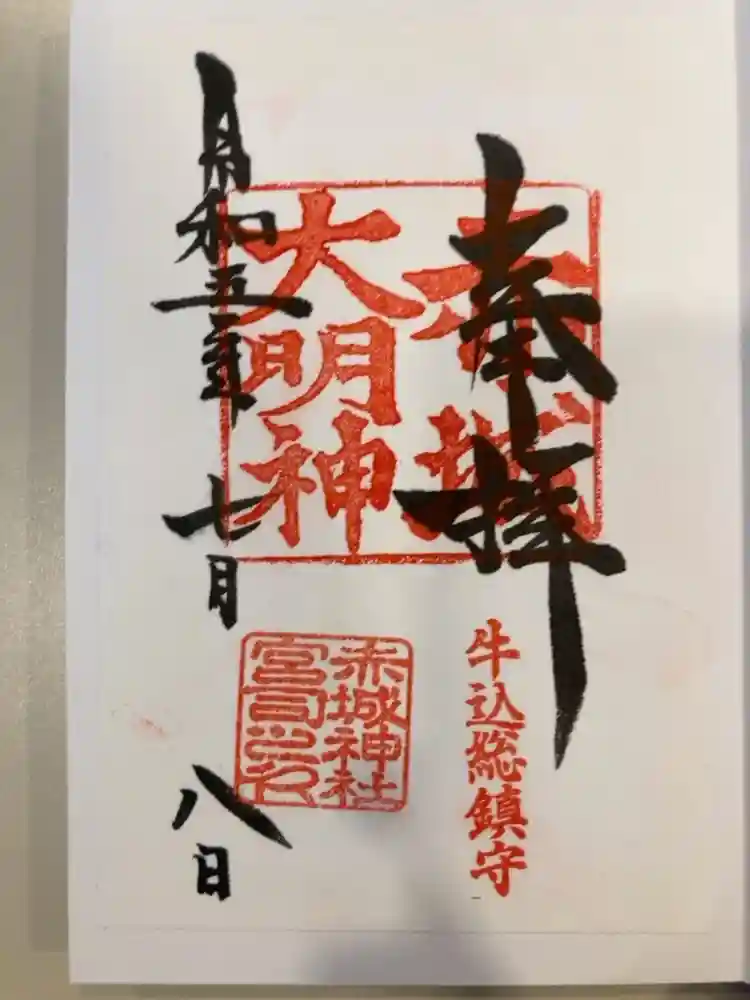 奉拝
赤城
大明神
牛込総鎮守
赤城神社
宮司之印
令和五年
七月
八日